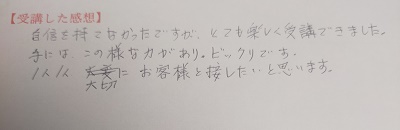 【受講した感想】
自信を持てなかったですが、とても楽しく受講できました。
手には、この様な力があり。ビックリです。
1人1人 大切に お客様と接したいと思います。